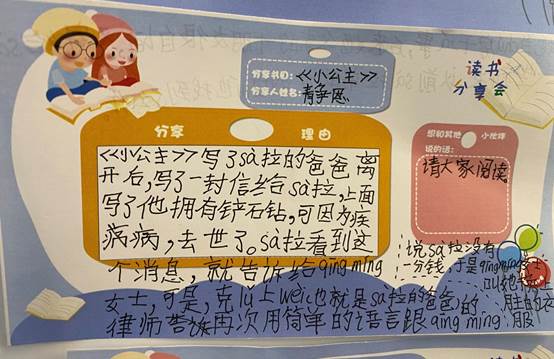 读书
分享会
分享书目：《小公主》
分享人姓名：
分享 理由
想和其他小伙伴
说的话：
请大家阅读
《小公主》写了sà拉的爸爸离
开后，写了一封信给sà拉，上面
写了他拥有钻石钻，可因为疾
病病，去世了。sà拉看到这
个消息，就告诉给qing míng
女士，可是，克lǔ上weic也就是sà拉的爸爸的
律师告诉再次用简单的语言跟qing míng
说sà拉没有
一分钱，于是qing míng
叫她
胜的衣
服